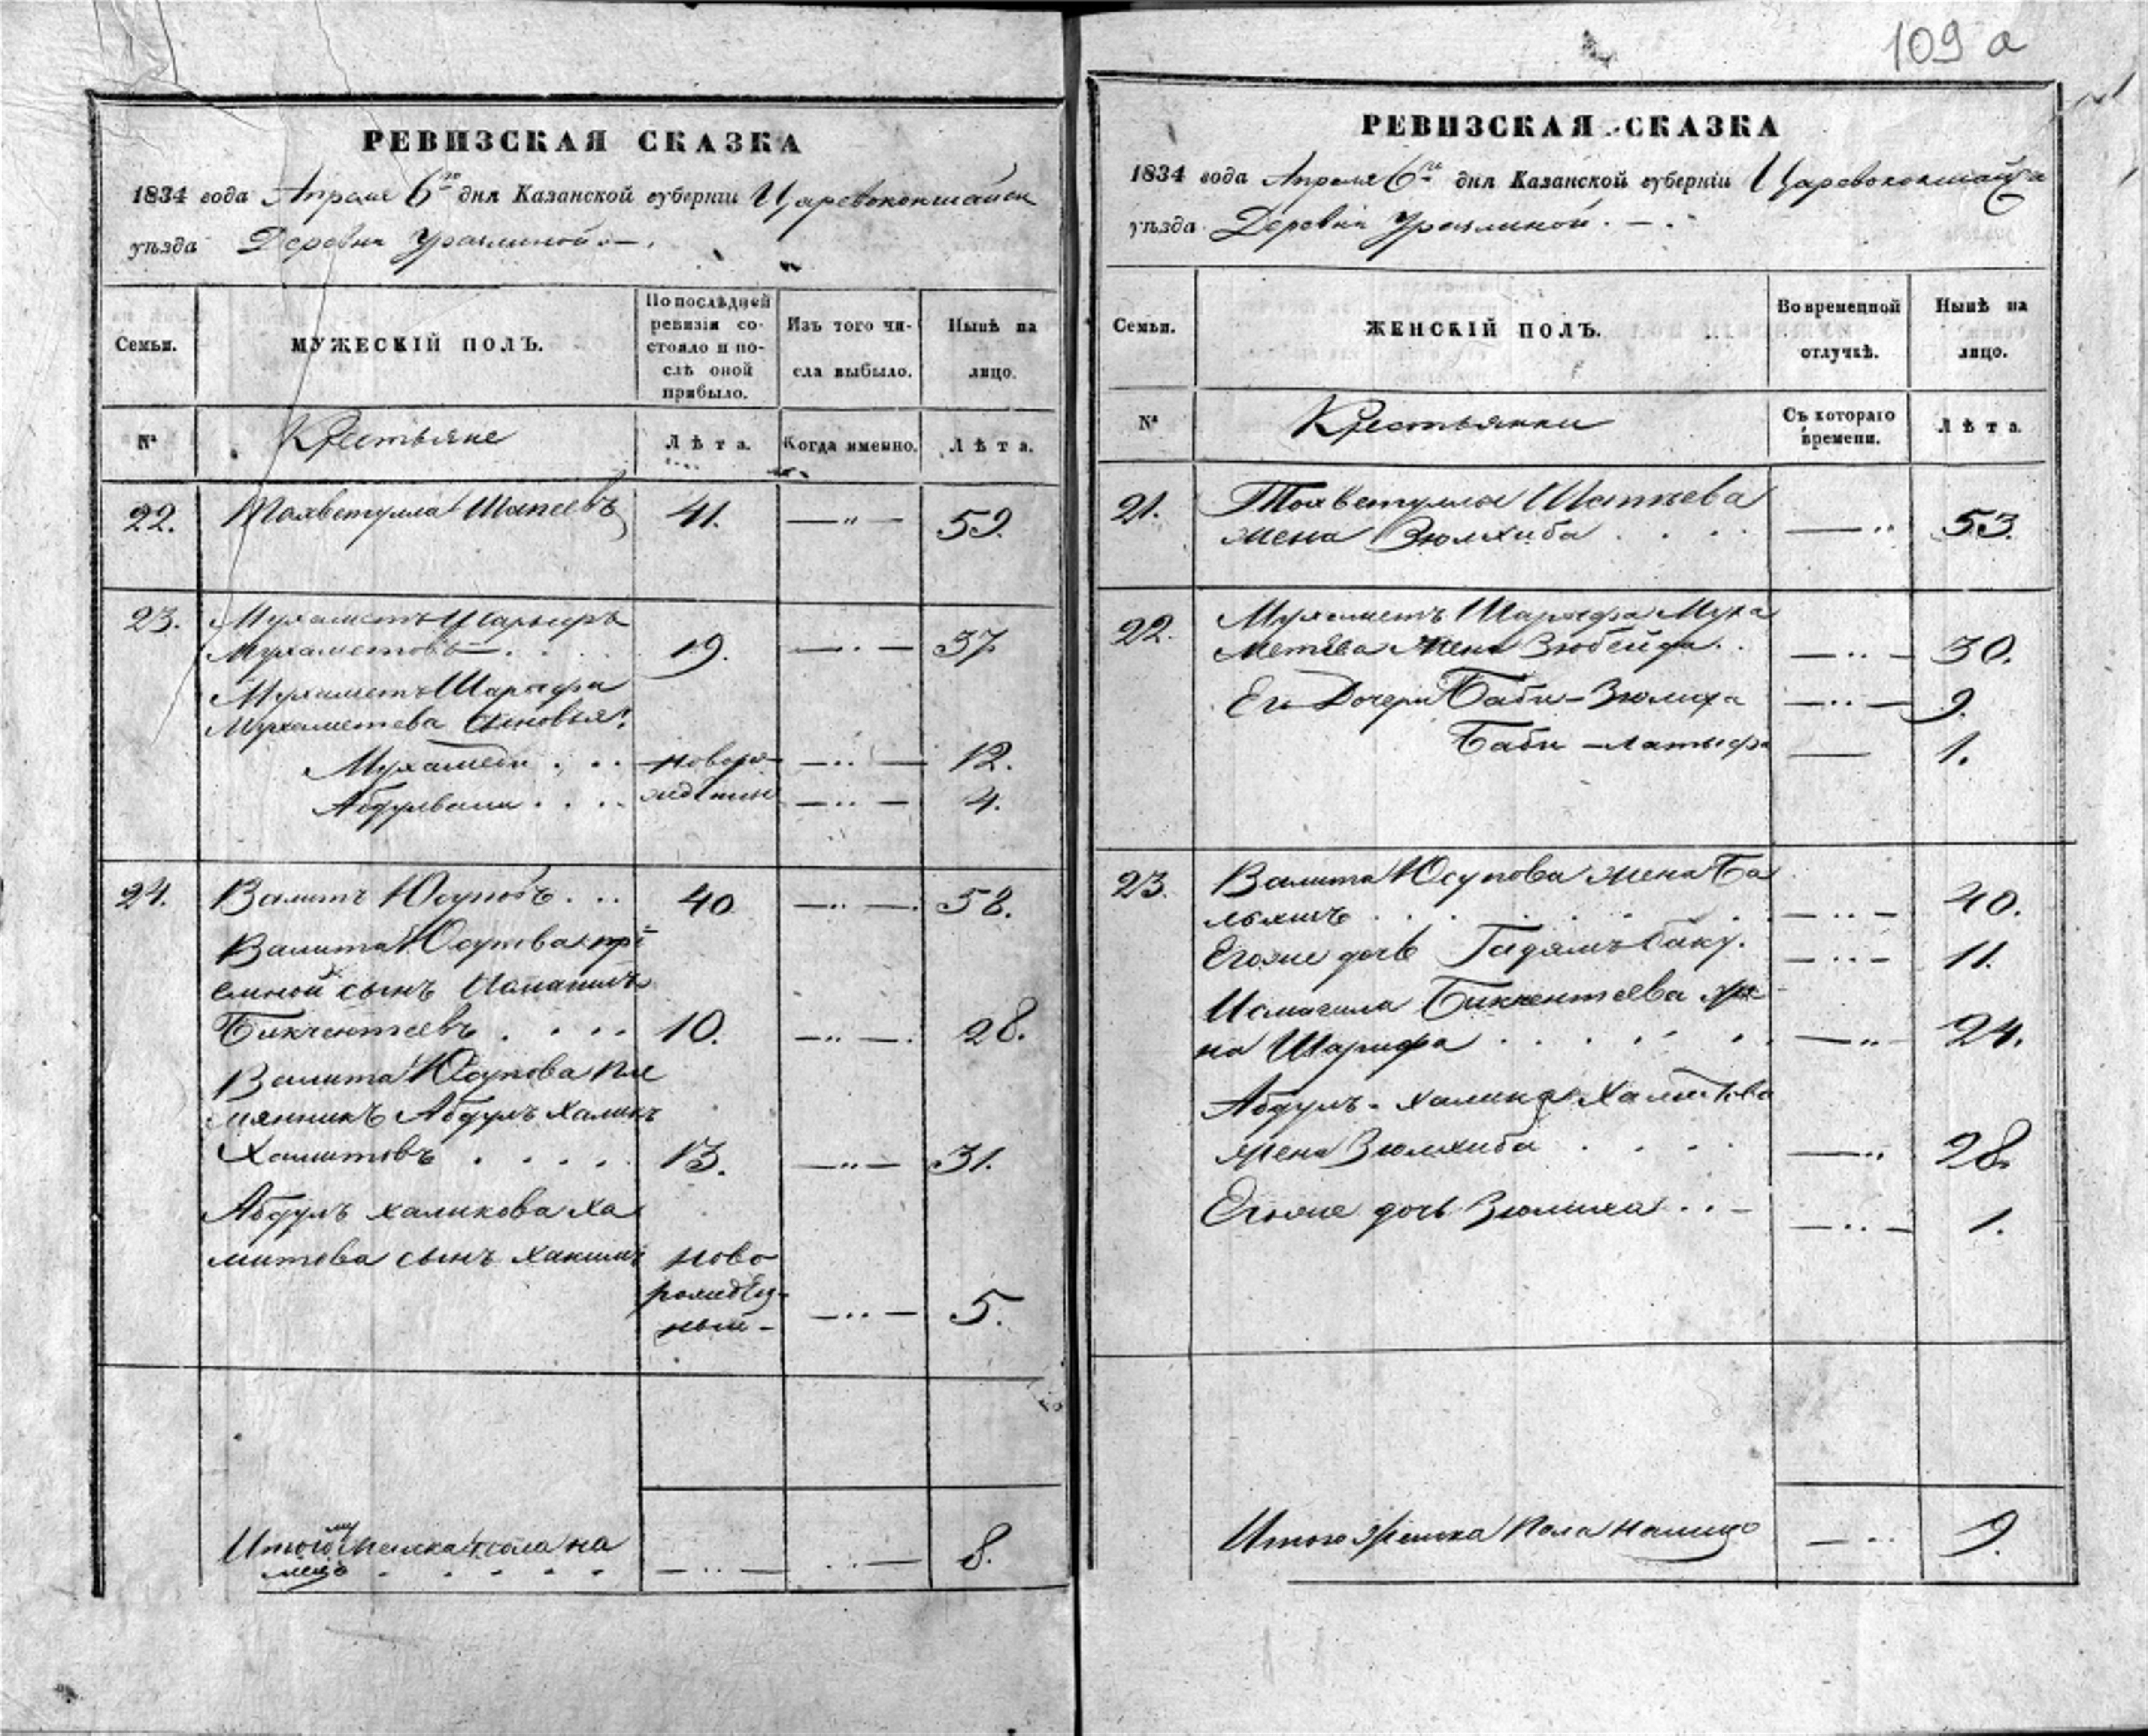 109 а
РЕВИЗСКАЯ СКАЗКА
1834 года Апреля 6го дня Казанской губерніи Царевококшайск
уѣзда Деревни Ураzлиной
Семьи.
МУЖЕСКІЙ ПОЛЪ.
По послѣдней
ревизіи со-
стояло и по-
слѣ оной
прибыло.
Изъ того чи-
сла выбыло.
Нынѣ на
лицо.
№
Крестьяне
Лѣта.
Когда именно.
Лѣта.
22. 41. 59.
23. Мухаметъ Шарыфъ
Мухаметовъ 19. 37
Мухаметъ Шарыфа
Мухаметева сыновья:
Мухамеди новоро- 12.
Абдулвали жденные 4.
24. Валитъ Юсуповъ 40 58.
Валита Юсупова прі
емной сынъ Исмагилъ
Бикчентеевъ 10. 28.
Валита Юсупова пле
мянникъ Абдулъ Халикъ
Хамитовъ 13. 31.
Абдулъ халикова Ха
митова сынъ Хакимъ ново
рожден-
ный 5.
Итого мужеска пола на
лицо 8.
РЕВИЗСКАЯ СКАЗКА
1834 года Апреля 6го дня Казанской губерніи Царевококшайска
уѣзда Деревни
Семьи.
ЖЕНСКІЙ ПОЛЪ.
Во временной
отлучкѣ.
Нынѣ на
лицо.
№
Крестьянки
Съ котораго
времени.
Лѣта.
21.
жена Зюлхиба 53.
22. Мухаметъ Шарыфа Муха
метева жена Зюбейда 30.
Его Дочери Баби-Зюлиха 9.
Баби-латыфа 1.
23. Валита Юсупова жена Ба
40.
Егоже дочь 11.
Исмагила Бикчентеева же
на Шарифа 24.
Абдулъ-халика Хамитова
жена Зюлхиба 28
Егоже дочь Зюлиха 1.
Итого женска пола налицо 9.